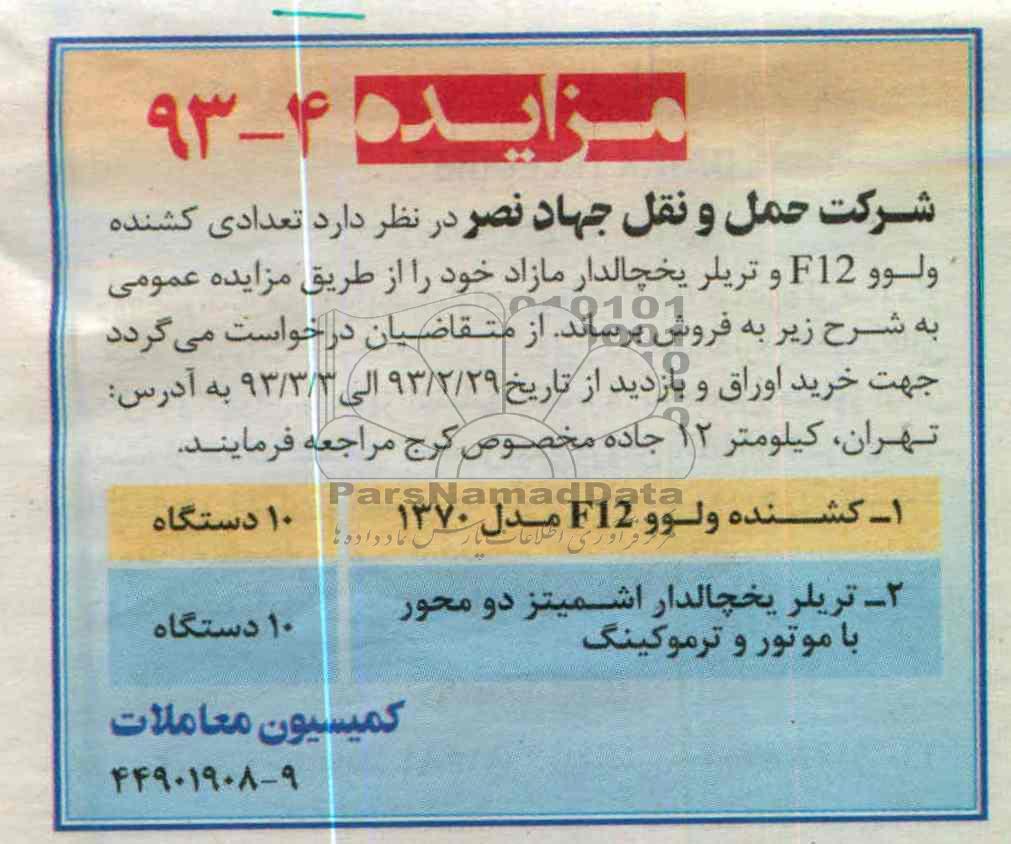 مزایده ۴-۹۳
شرکت حمل و نقل جهاد نصر در نظر دارد تعدادی کشنده
ولوو F12 و تریلر یخچالدار مازاد خود را از طریق مزایده عمومی
به شرح زیر به فروش برساند. از متقاضیان درخواست می گردد
جهت خرید اوراق و بازدید از تاریخ ۹۳/۲/۲۹ الی ۹۳/۳/۳ به آدرس:
تهران، کیلومتر ۱۲ جاده مخصوص کرج مراجعه فرمایند.
ParsNamadData
۱ـ کشنده ولوو F12 مدل ۱۳۷۰ ۱۰ دستگاه
مرکز فرآوری اطلاعات پارس نماد داده ها
۲ـ تریلر یخچالدار اشمیتز دو محور
با موتور و ترموکینگ ۱۰ دستگاه
کمیسیون معاملات
۴۴۹۰۱۹۰۸-۹